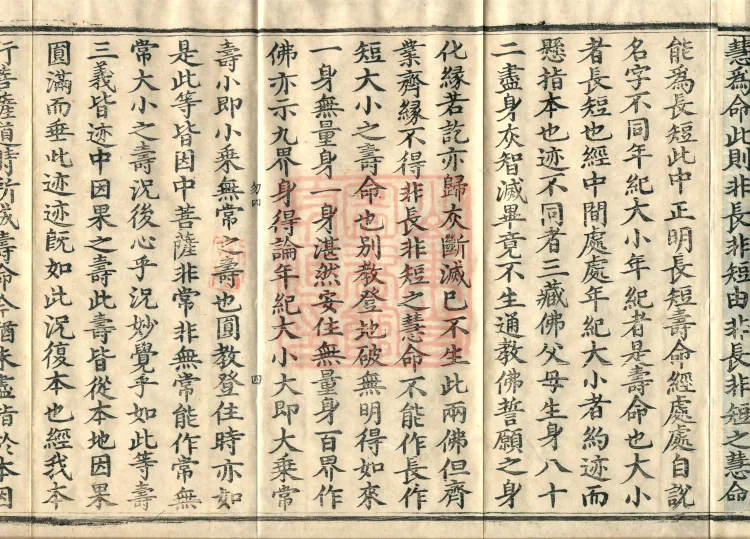 慧為命此則非長非短由非長非短之慧命
能為長短此中正明長短壽命經處處自說
名字不同年紀大小年紀者是壽命也大小
者長短也經中間處處年紀大小者約迹而
懸指本也迹不同者三藏佛父母生身八十
二盡身灰智滅畢竟不生通教佛誓願之身
化縁若訖亦歸灰斷滅已不生此兩佛但齊
業齊縁不得非長非短之慧命不能作長作
短大小之壽命也別教登地破無明得如來
一身無量身一身湛然安住無量身百界作
佛亦示九界身得論年紀大小大即大乘常
勿四 四
壽小即小乘無常之壽也圓教登住時亦如
是此等皆因中菩薩非常非無常能作常無
常大小之壽況後心乎況妙覺乎如此等壽
三義皆迹中因果之壽此壽皆從本地因果
圓滿而垂此迹迹既如此況復本也經我本
行菩薩道時所成壽命今猶未盡指於本因